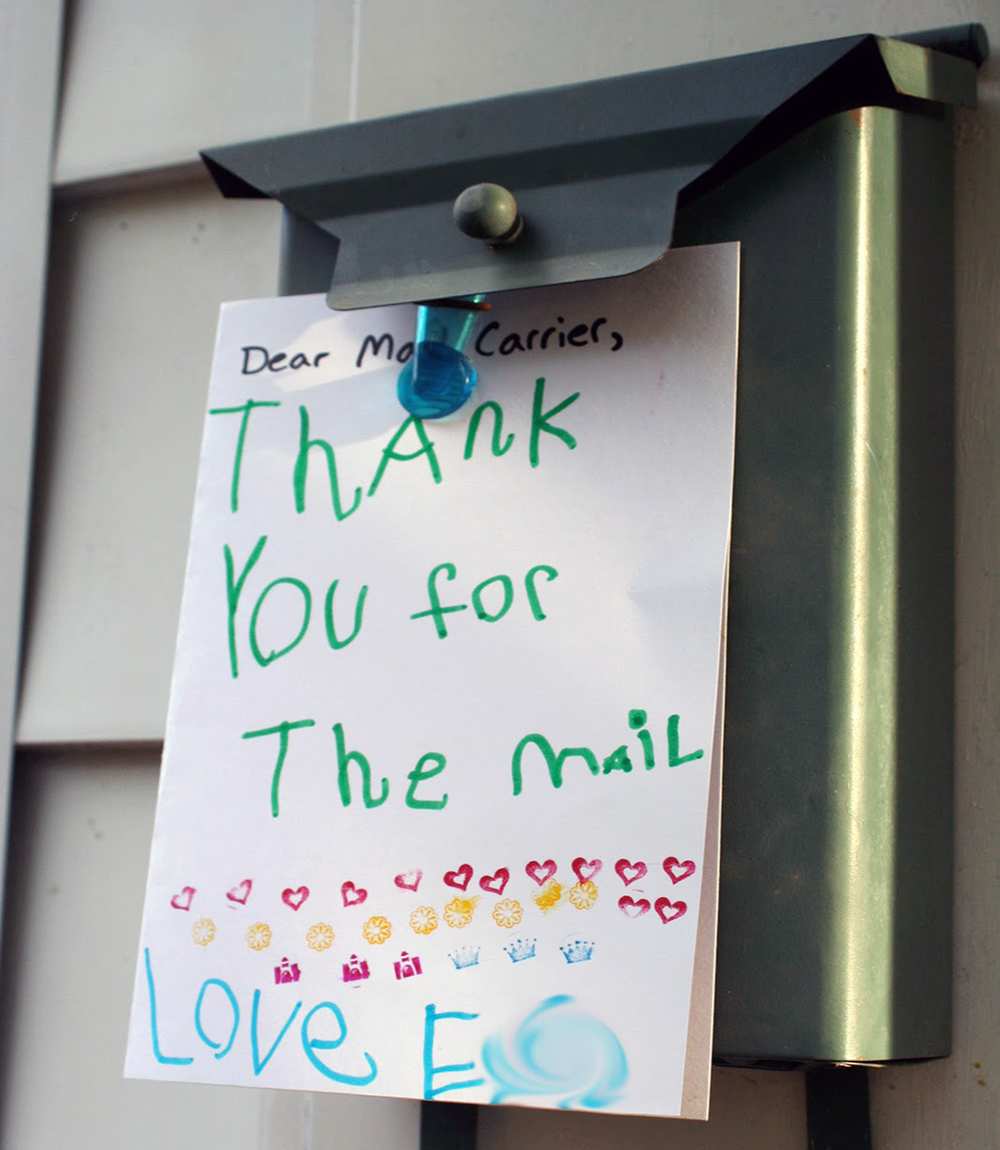 Dear Mail Carrier,
ThAnk
YOU for
The mAiL
Love E